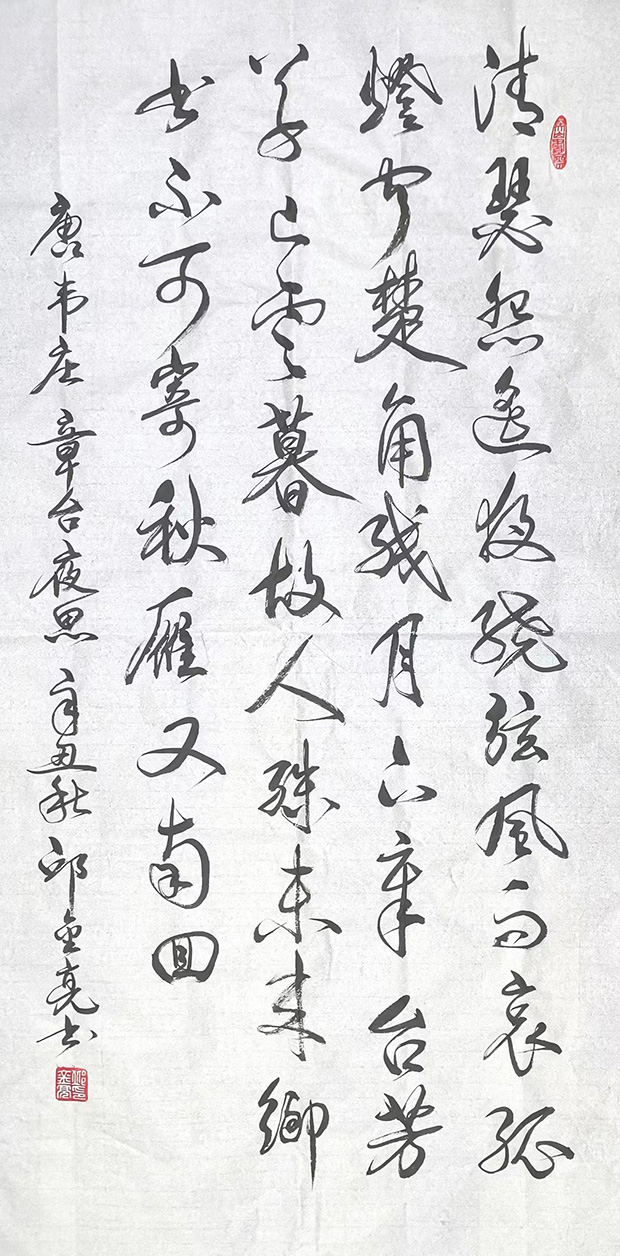 清瑟怨遥夜绕弦风雨哀孤
燈闻楚角残月下章台芳
草已雲暮故人殊未来鄉
书不可寄秋雁又南回
唐韦庄章台夜思 辛丑秋 邱金亮书